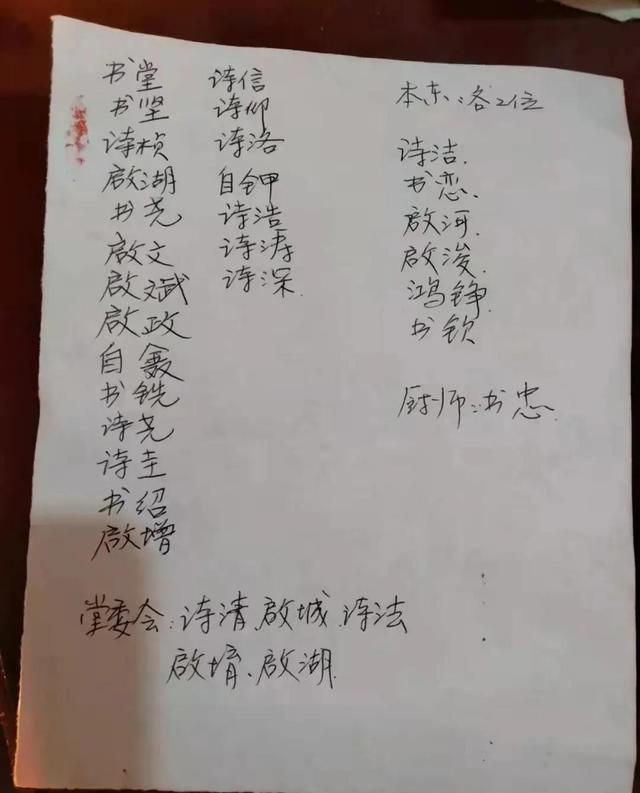 书堂
书坚
诗桢
啟湖
书尧
啟文
啟斌
啟政
自
书铣
诗尧
诗圭
书绍
啟增
诗信
诗仰
诗洛
自钾
诗浩
诗涛
诗深.
本东:各2位
诗洁.
书恋.
啟河.
啟浚.
鸿铮.
书钦
厨师:书忠.
堂委会:诗清、啟城、诗法
啟堉、啟湖.